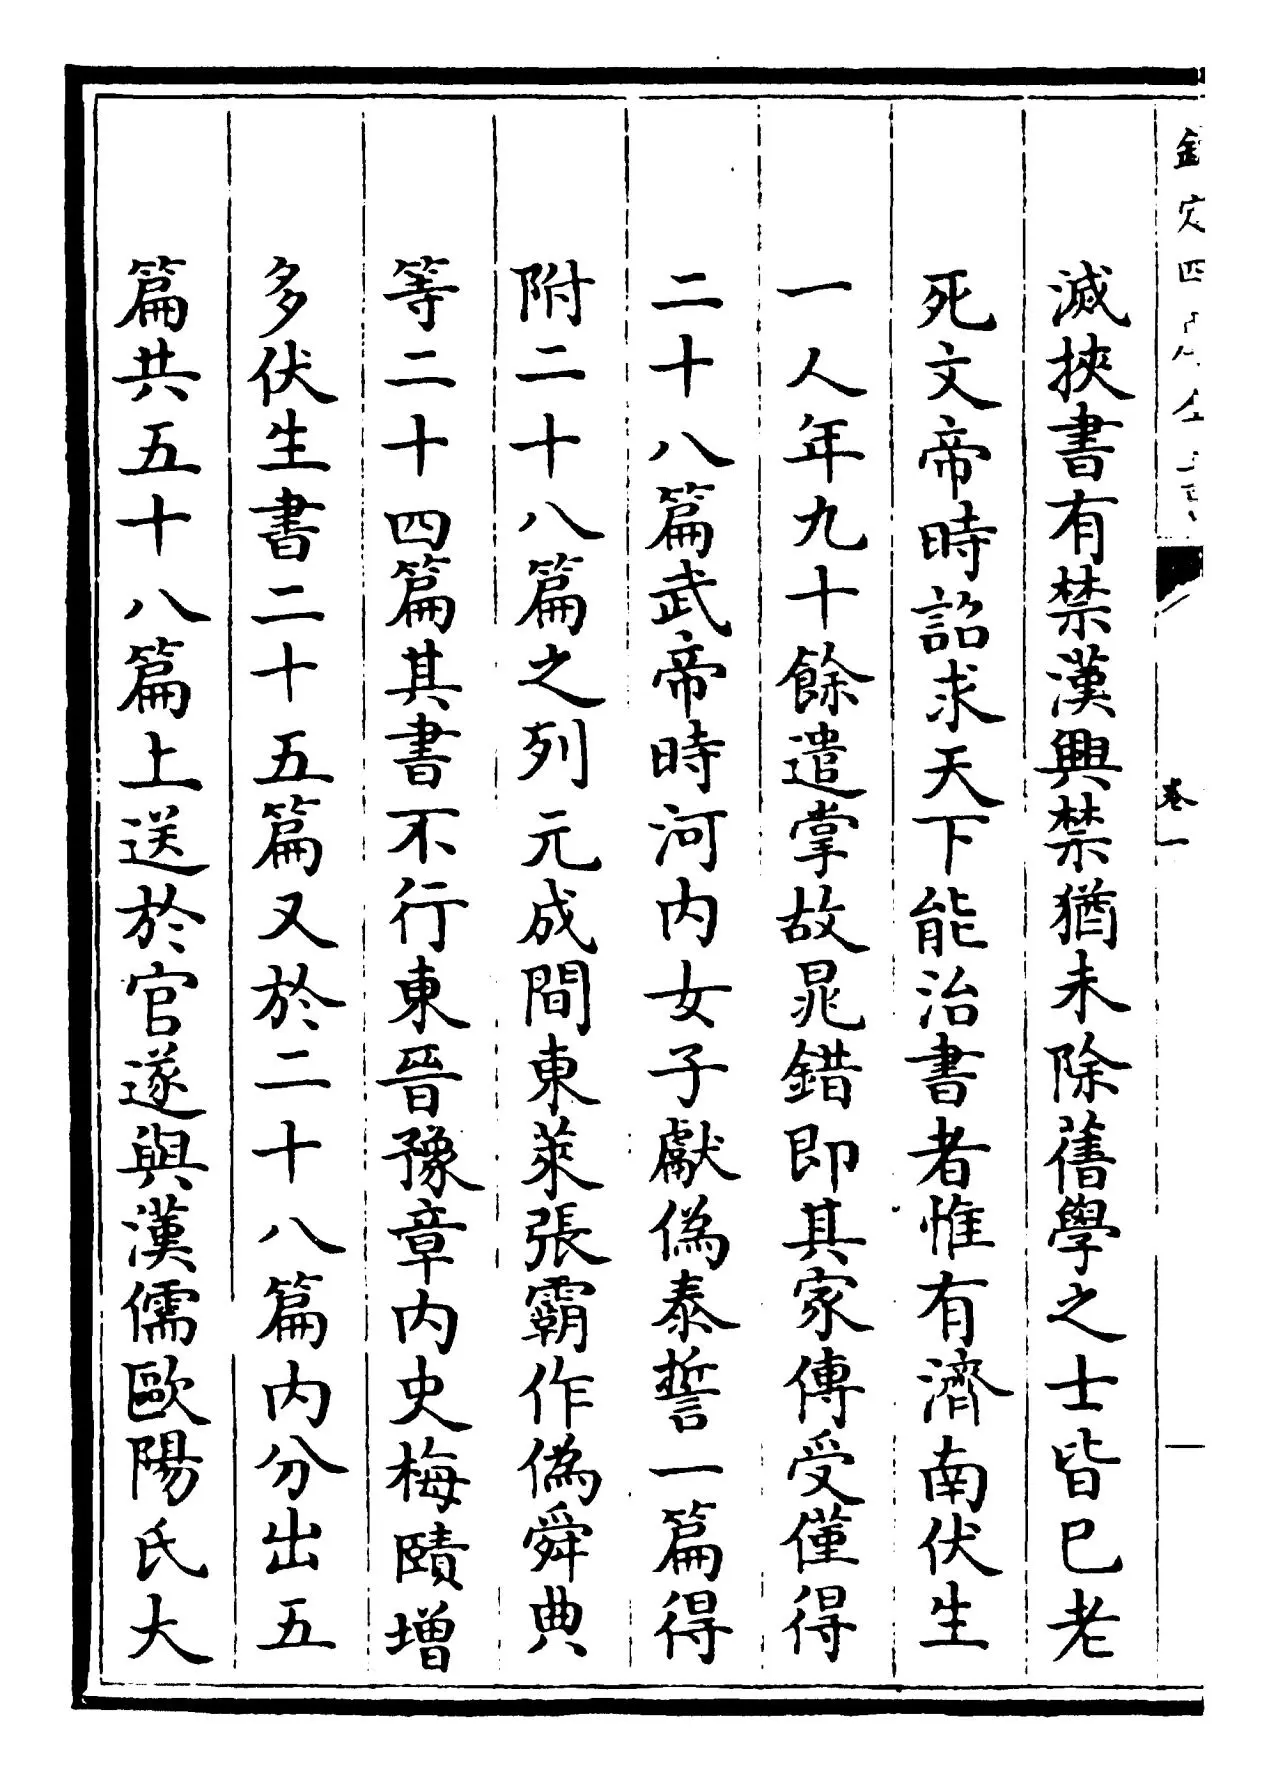 欽定四庫全書
卷一
滅挾書有禁漢興禁猶未除舊學之士皆已老
死文帝時詔求天下能治書者惟有濟南伏生
一人年九十餘遣掌故晁錯即其家傳受僅得
二十八篇武帝時河內女子獻偽泰誓一篇得
附二十八篇之列元成間東萊張霸作偽舜典
等二十四篇其書不行東晉豫章內史梅賾增
多伏生書二十五篇又於二十八篇內分出五
篇共五十八篇上送於官遂與漢儒歐陽氏大